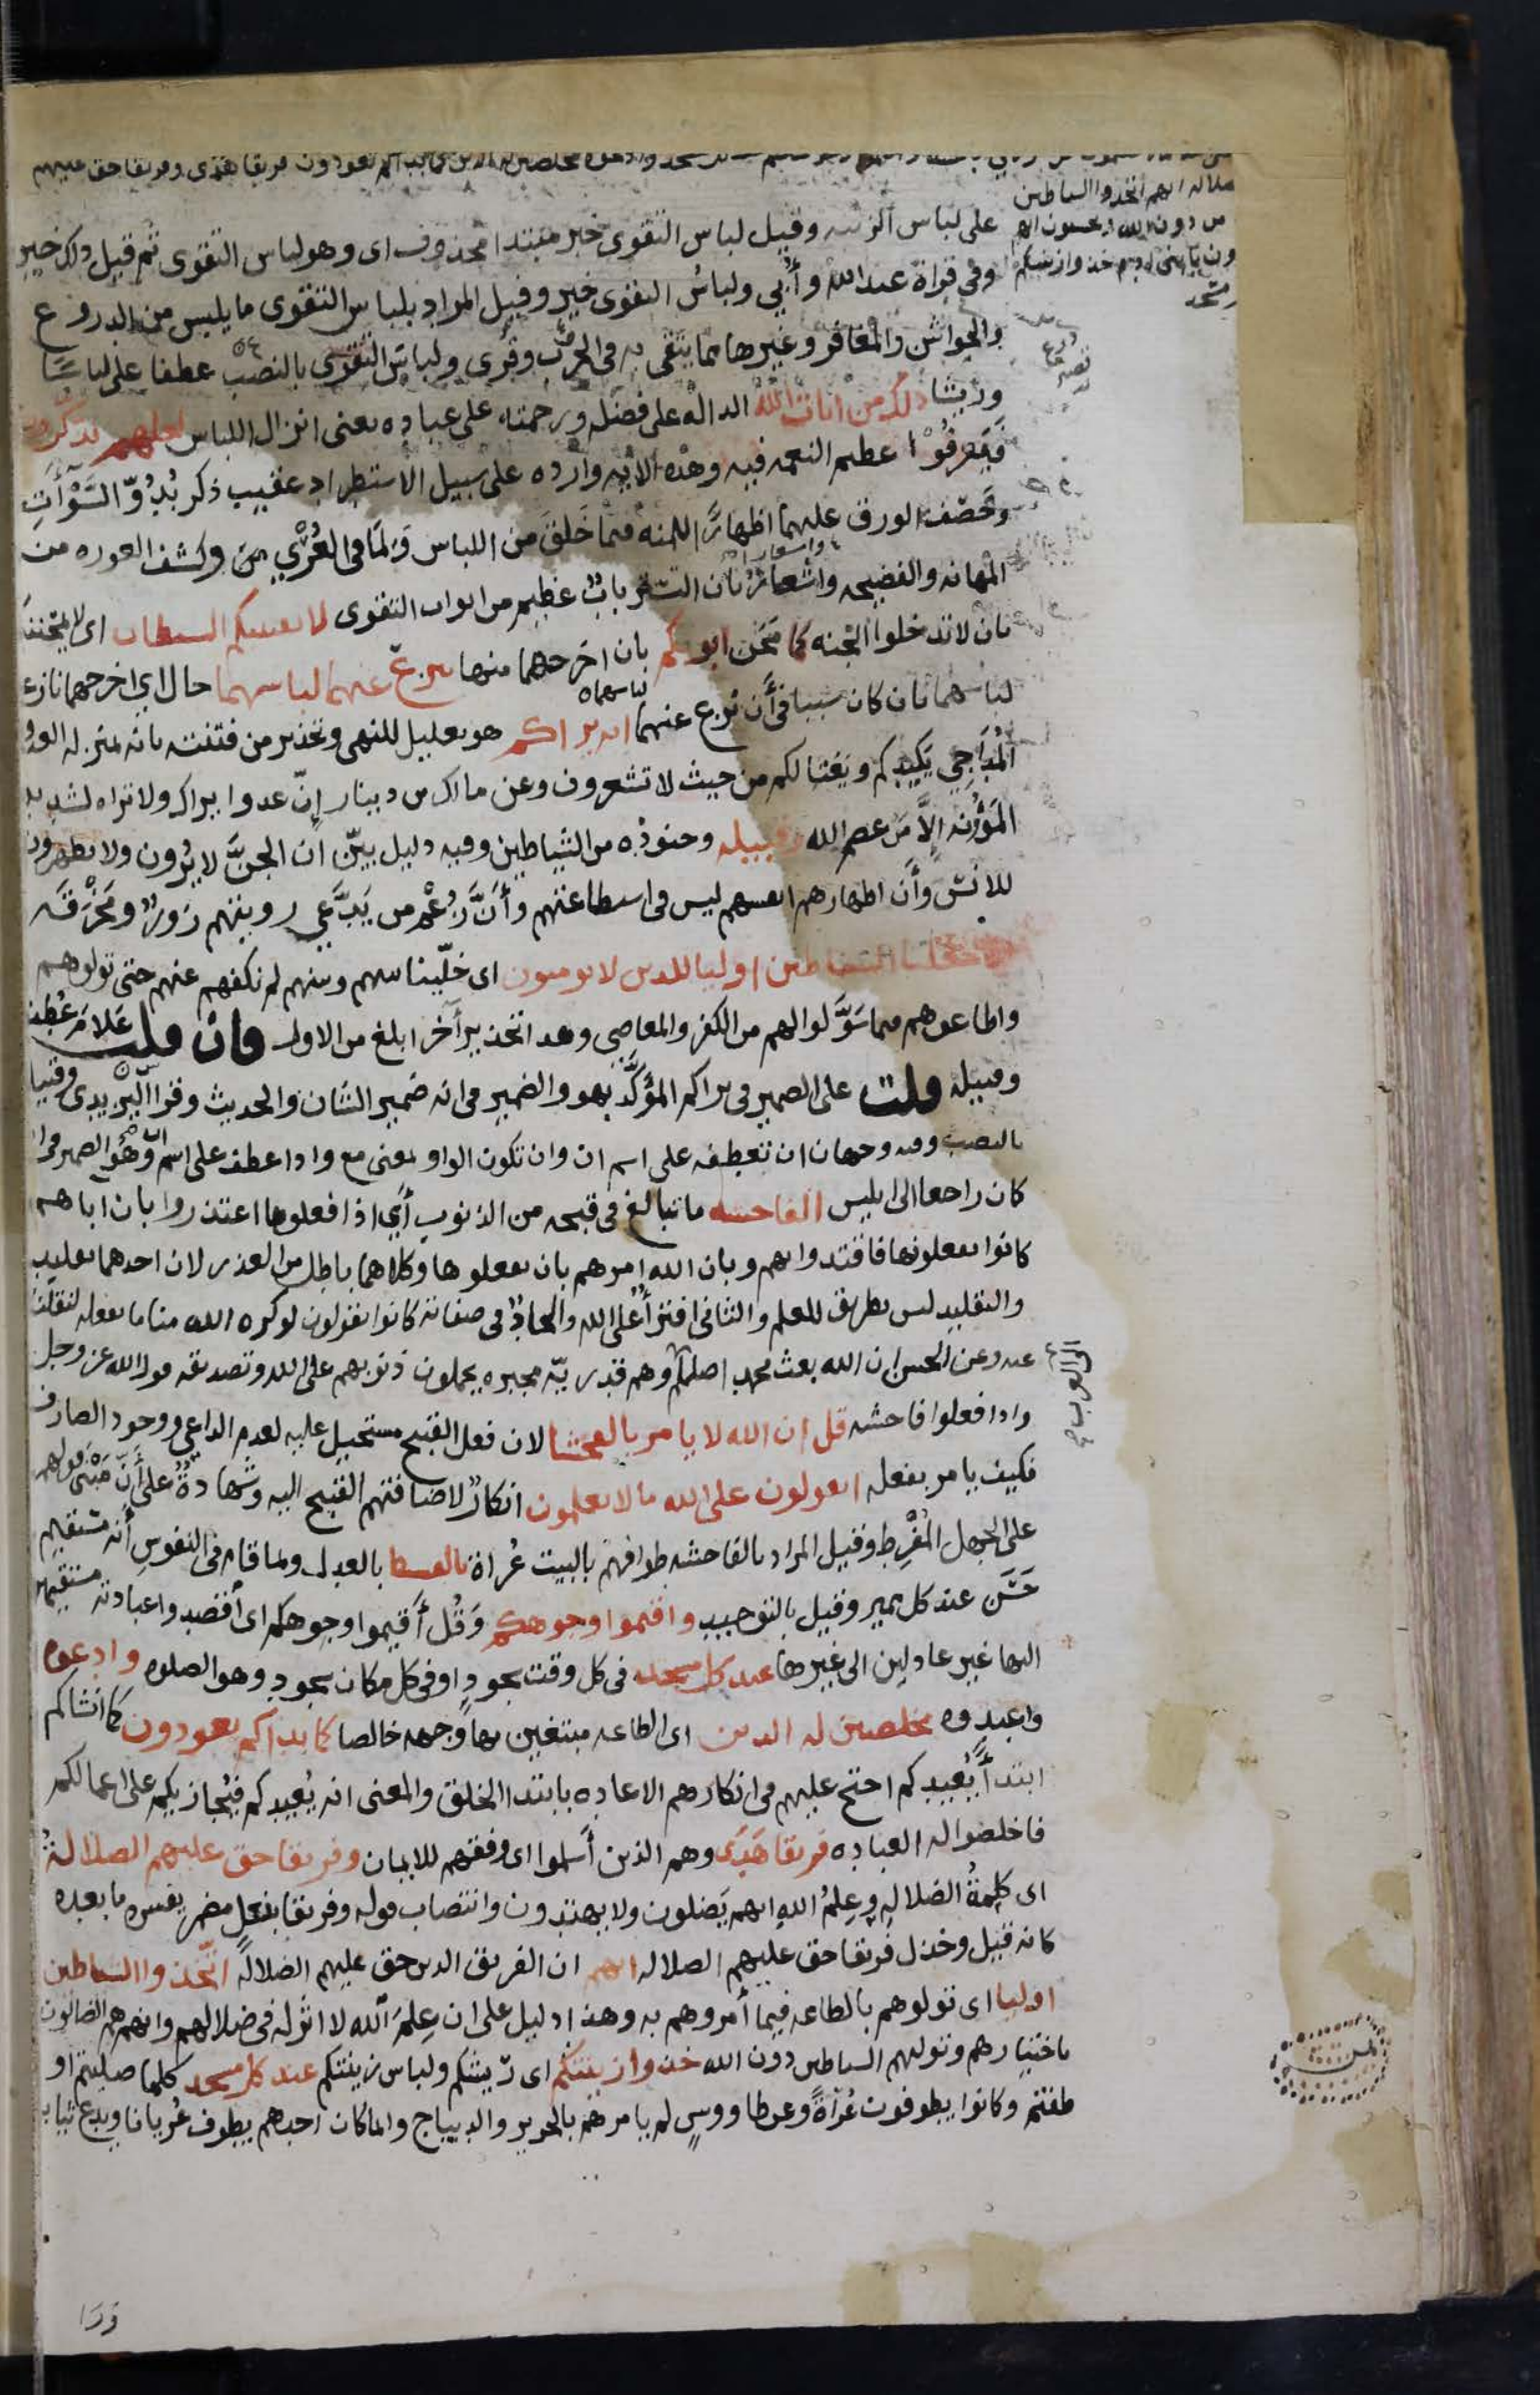 مخلصين له الدين كما بدأكم تعودون فريقا هدى وفريقا حق عليهم
الضلاله انهم اتخذوا الشياطين
من دون الله ويحسبون انهم
خذوا زينتكم
على لباس الزينه وقيل لباس التقوى خبر مبتدا محذوف اى وهو لباس التقوى ثم قيل ذلك خير
وفى قراة عبد الله وأُبي ولباسُ التقوى خير وقيل المراد بلباس التقوى ما يلبس من الدروع
والجواشن والمغافر وغيرها مما يتقى به فى الحرب وقرى ولباسَ التقوى بالنصب عطفا على لباسًا
وريشا ذلك من ايات الله الداله على فضله ورحمته على عباده يعنى انزال اللباس لعلهم يذكرون
فيعرفوا عظيم النعمه فيه وهذه الايه وارده على سبيل الاستطراد عقيب ذكر بُدُوّ السَّوْأَت
وخصف الورق عليها اظهارًا للمنه فيما خَلقَ من اللباس وَلمَا فى العُرْي من وكشف العوره من
المهانه والفضيحه واشعارًا بان التستر بابٌ عظيم من ابواب التقوى لا يفتننكم الشيطان اى لا يمتحننكم
بان لا تدخلوا الجنه كما محن ابويكم بان اخرجهما منها ينزع عنهما لباسهما حال اى اخرجهما نازعا
لباسهما بان كان سببا فى أن نُزع عنهما انه يراكم هو تعليل للنهى وتحذير من فتنته بانه بمنزله العدو
المُدَاجِي يَكيدكم ويغتالكم من حيث لا تشعرون وعن مالك بن دينار إنّ عدوا يراك ولا تراه لشديد
المَؤُنه إلاَّ مَن عصم الله وقبيله وجنوده من الشياطين وفيه دليل بيّن ان الجنَّ لا يُرون ولا يظهرون
للانس وأن اظهارهم انفسهم ليس فى استطاعتهم وأَنَّ زُعْم من يَدَّعي رويتهم زورٌ ومَخْرَقَه
انا جعلنا الشياطين اوليا للذين لا يومنون اى خلّينا بينهم وبينهم لم نكفهم عنهم حتى تولوهم
واطاعوهم فيما سَوَّلوا لهم من الكفر والمعاصى وهذا تحذير آخر ابلغ من الاول فان قلت عَلاَمَ عُطِف
وقبيله قلت على الضمير فى يراكم المؤكَّد بهو والضمير فى انه ضمير الشان والحديث وقرا اليزيدى وقبيلَه
بالنصب وفيه وجهان ان تعطفه على اسم ان وان تكون الواو بمعنى مع واذا عطف على اسم ان وهو الضمير فى انه
كان راجعا الى ابليس الفاحشه ما تبالغ فى قبحه من الذنوب أي اذا فعلوها اعتذروا بان اباهم
كانوا يفعلونها فاقتدوا بهم وبان الله امرهم بان يفعلوها وكلاهما باطل من العذر لان احدهما تقليد
والتقليد ليس بطريق للعلم والثانى افترأ على الله والحاد فى صفاته كانوا يقولون لو كره الله منا ما نفعله لنقلنا
عنه وعن الحسن ان الله بعث محمدا صلعم الى العرب وهم قدريّه مجبره يحملون ذنوبهم على الله وتصديقه قول الله عز وجل
واذا فعلوا فاحشه قل ان الله لا يامر بالفحشا لان فعل القبيح مستحيل عليه لعدم الداعي ووجود الصارف
فكيف يامر بفعله اتقولون على الله ما لا تعلمون انكارٌ لاضافتهم القبيح اليه وشهادةٌ على أنّ مَبْنى قولهم
على الجهل المُفْرِط وقيل المراد بالفاحشه طوافهم بالبيت عُراة بالقسط بالعدل وبما قام فى النفوس أنه مستقيم
حَسَن عند كل مميز وقيل بالتوحيد واقيموا وجوهكم وَقُل أَقيموا وجوهكم اى أقصدوا عبادته مستقيمين
اليها غير عادلين الى غيرها عند كل مسجد فى كل وقت سجودٍ او فى كل مكان سجودٍ وهو الصلوه وادعوه
واعبدوه مخلصين له الدين اى الطاعه مبتغين بها وجهه خالصا كما بداكم تعودون كما انشاكم
ابتدأً يُعيدكم احتج عليهم فى انكارهم الاعاده بابتدا الخلق والمعنى انه يُعيدكم فيُجازيكم على اعمالكم
فاخلصوا له العباده فريقا هَدَى وهم الذين أَسلموا اى وفقهم للايمان وفريقا حق عليهم الضلالةُ
اى كلِمةُ الضلاله وعِلمُ الله انهم يَضلون ولا يهتدون وانتصاب قوله وفريقا بفعل مضمر يفسره ما بعده
كانه قيل وخذل فريقا حق عليهم الضلاله انهم ان الفريق الذين حق عليهم الضلالهُ اتّخذوا الشياطين
اوليا اى تولوهم بالطاعه فيما أمروهم به وهذا دليل على ان عِلمَ الله لا اثر له فى ضلالهم وانهم هم الضالون
باختيارهم وتوليهم الشياطين دون الله خذوا زينتكم اى ريشكم ولباس زينتكم عند كل مسجد كلما صليتم او
طفتم وكانوا يطوفون عُرَاةً وعن طاووسٍ لم يامرهم بالحرير والديباج وانما كان احدهم يطوف عُريانا ويدع ثيابه
ورا